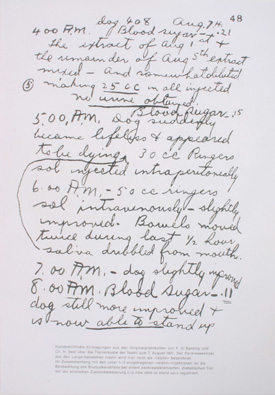 48
dog 408 Aug 7th.
4.00 A.M. Blood sugar — .21
The extract of Aug 1st &
the remainder of Aug 5th extract
mixed — and somewhat diluted
③ making 25 CC in all injected
no urine obtained
Blood sugar — .15
5.00, A.M. Dog suddenly
became lifeless & appeared
to be dying. 30 cc Ringers
sol injected intraperitoneally
6.00 A.M. - 50 cc ringers
sol intravenously — slightly
improved. Bowels moved
twice during last ½ hour
saliva drubbed from mouth.
7.00 A.M. - dog slightly improved
8.00 A.M. Blood Sugar — .11
dog still more improved &
is now able to stand up